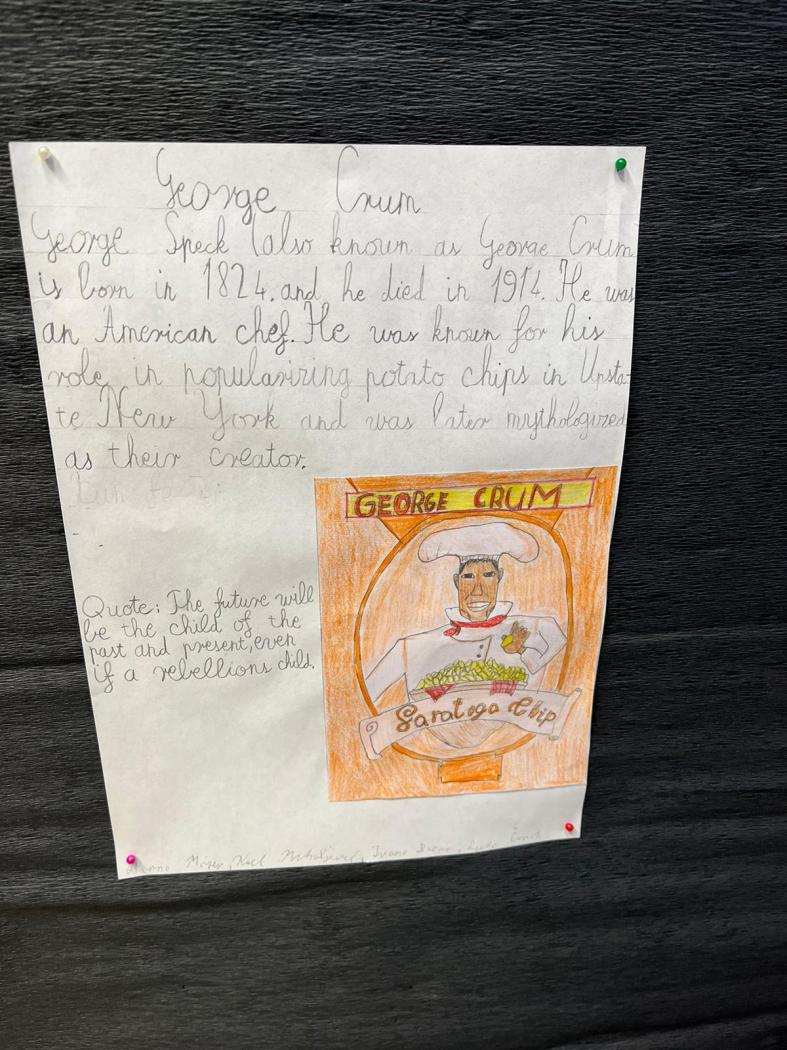 George Crum
George Speck (also known as George Crum
is born in 1824. and he died in 1914. He was
an American chef. He was known for his
role in popularizing potato chips in Upsta-
te New York and was later mythologized
as their creator.
GEORGE CRUM
Quote: The future will
be the child of the
past and present, even
if a rebellions child.
Saratoga Chip